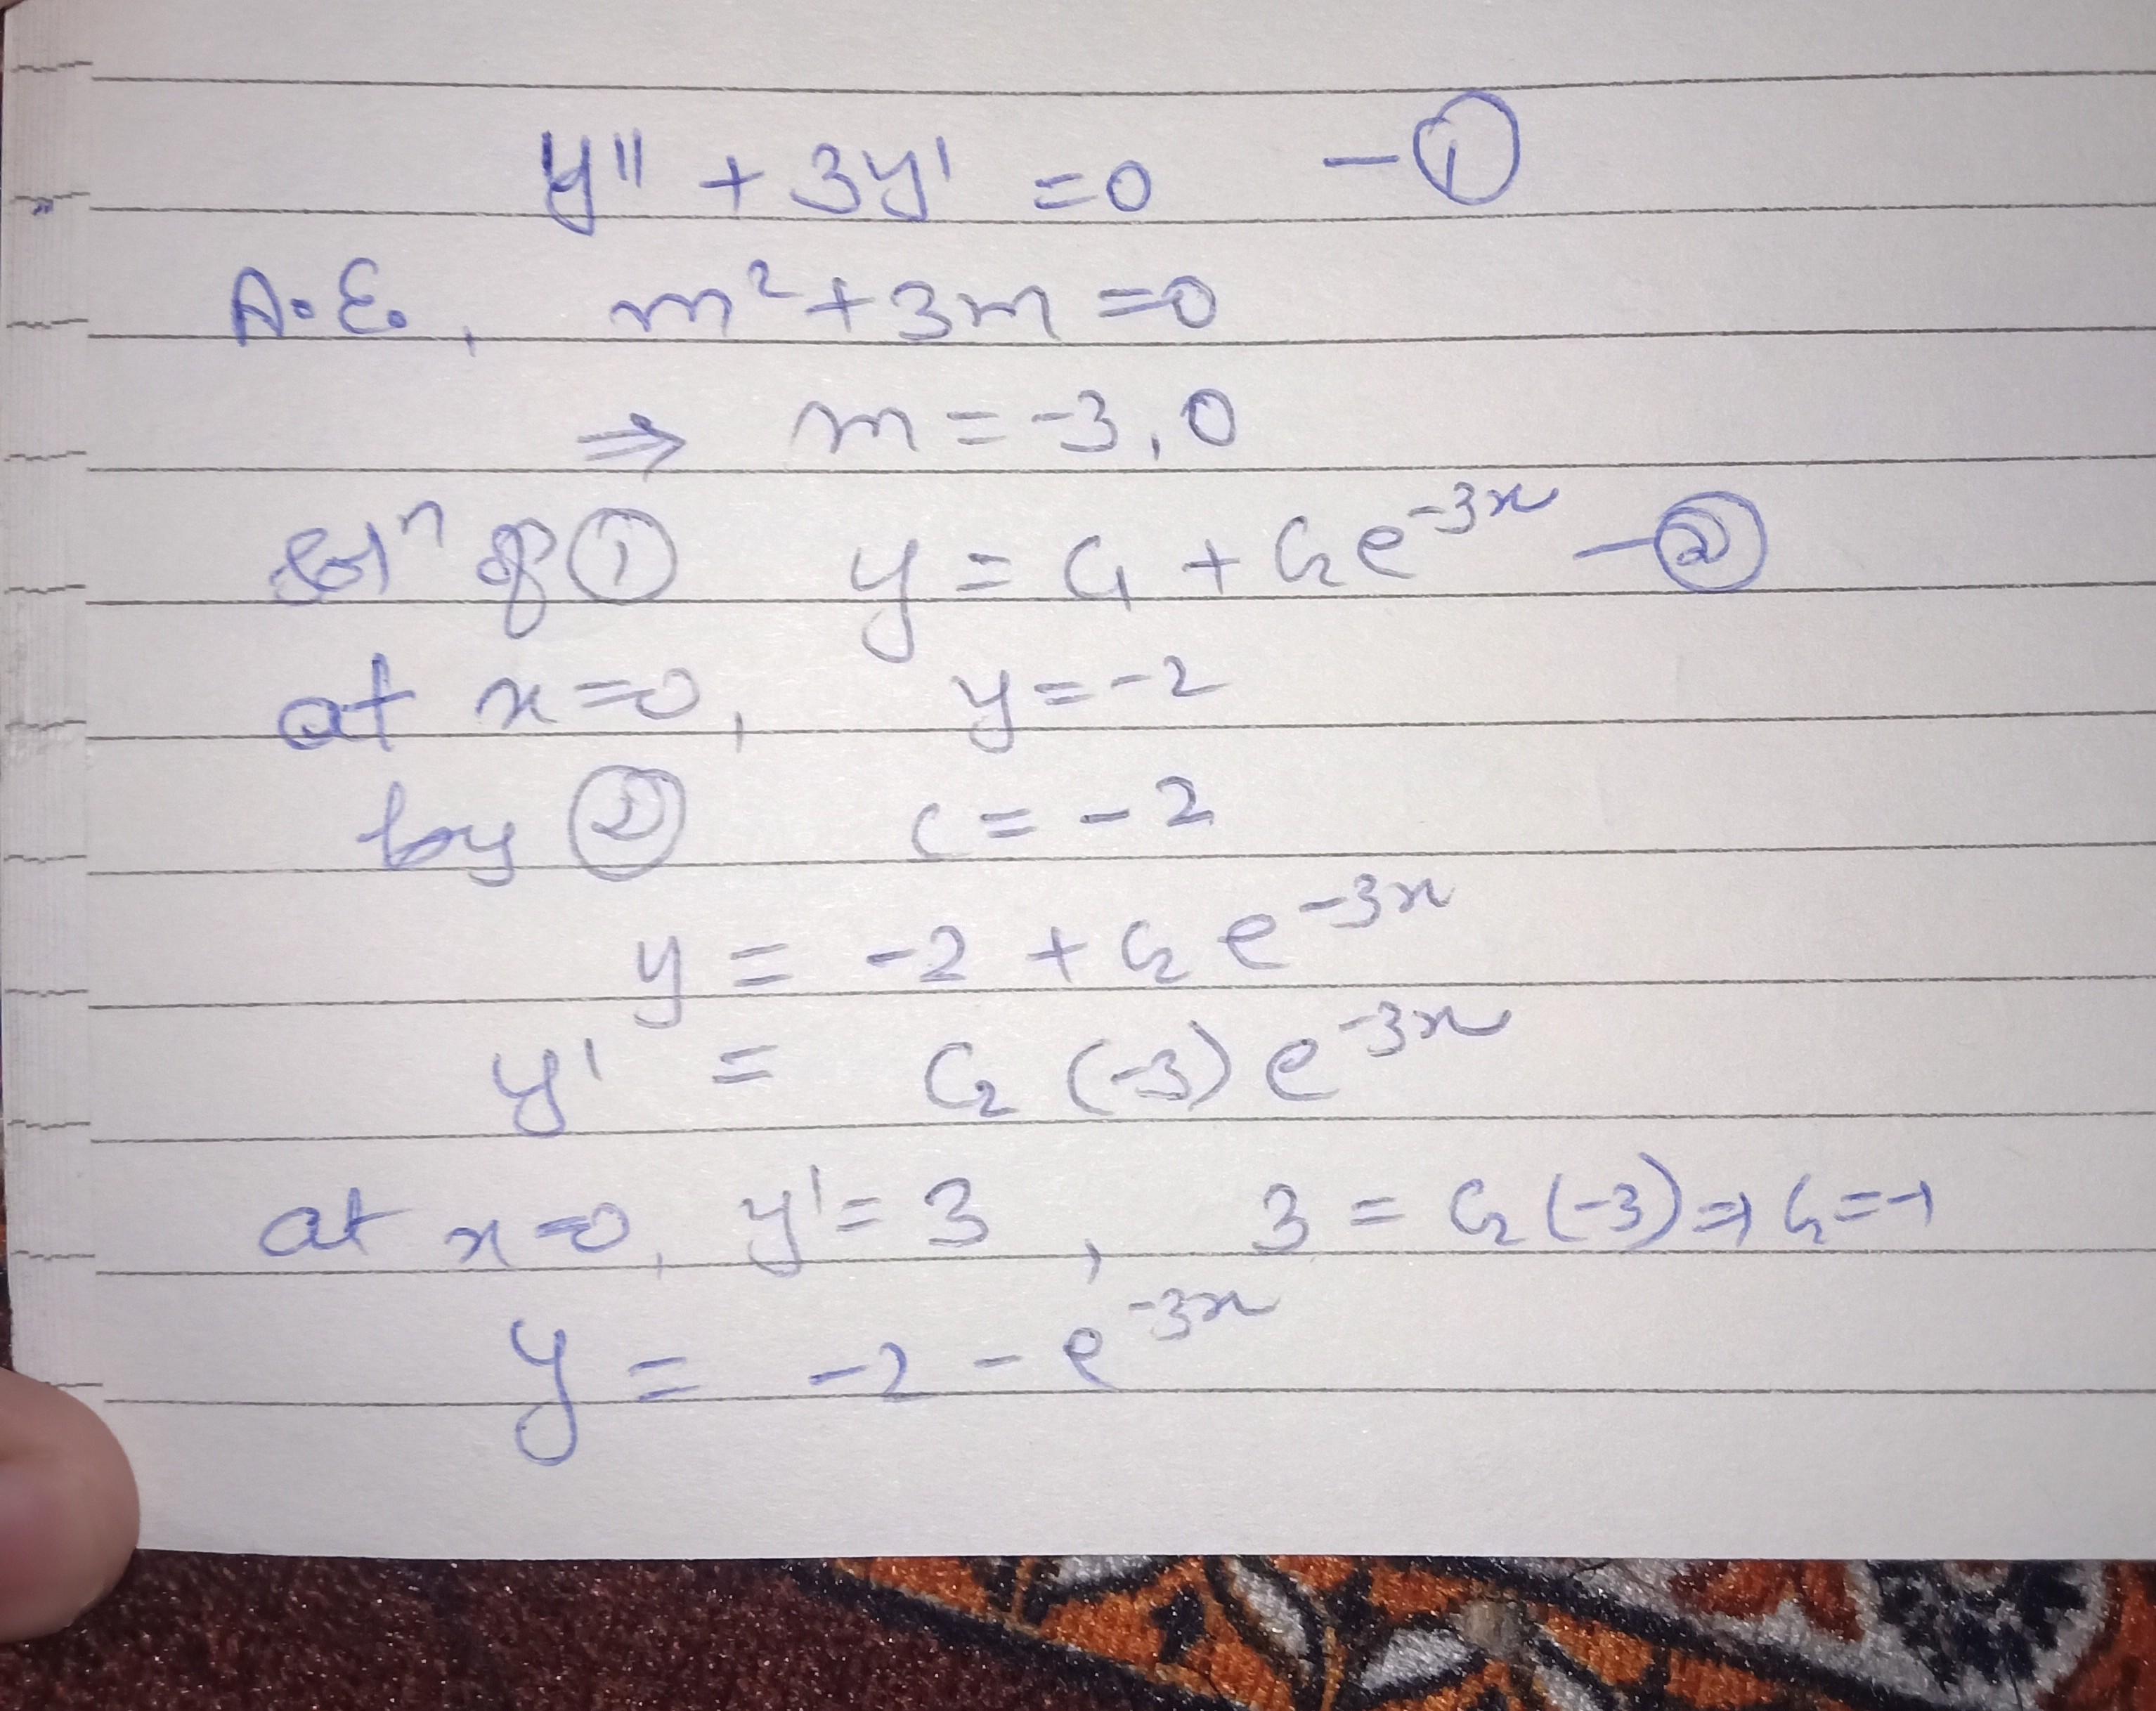 y'' + 3y' = 0 — ①
A.E., m² + 3m = 0
⇒ m = -3, 0
solⁿ of ① y = C₁ + C₂e⁻³ˣ — ②
at x = 0, y = -2
by ② C = -2
y = -2 + C₂ e⁻³ˣ
y' = C₂ (-3) e⁻³ˣ
at x = 0, y' = 3, 3 = C₂ (-3) ⇒ C₂ = -1
y = -2 - e⁻³ˣ